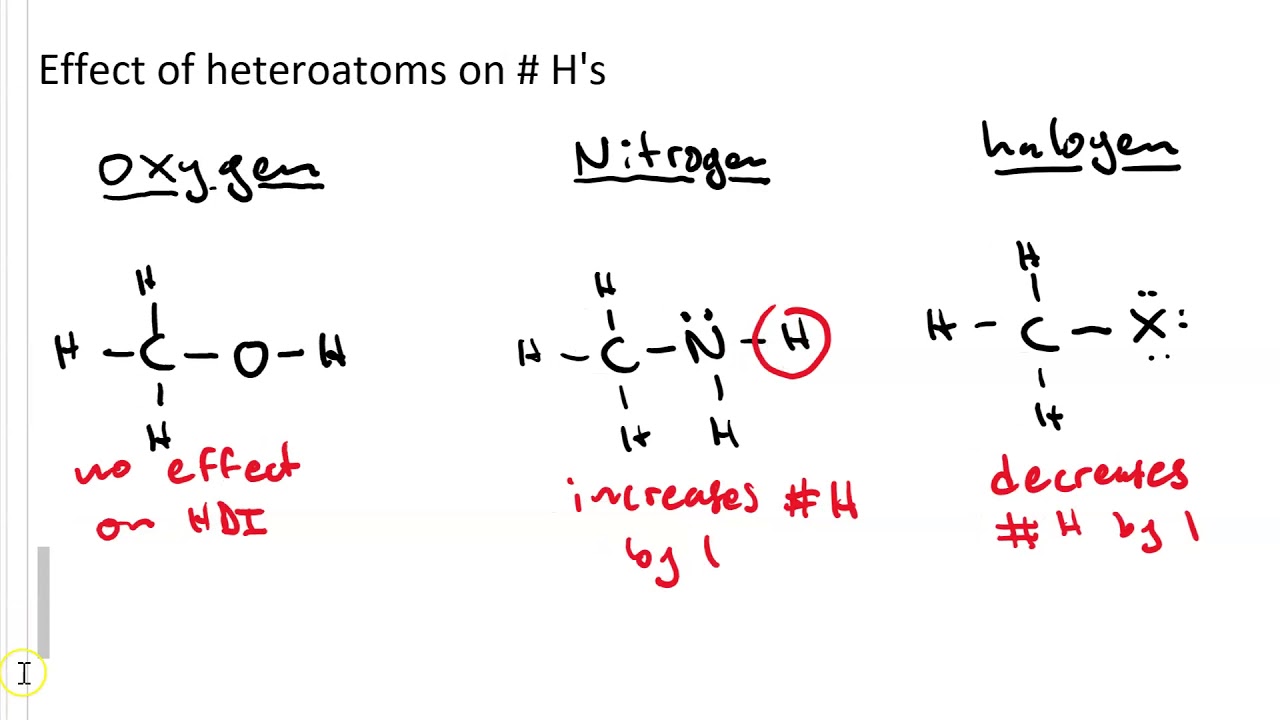 Effect of heteroatoms on # H's
Oxygen
Nitrogen
halogen
H
H - C - O - H
H
no effect
on HDI
H
H - C - N - H
H H
increases # H
by 1
H
H - C - X
H
decreases
# H by 1